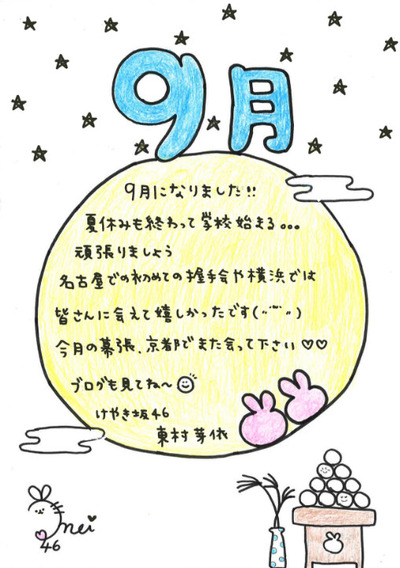 9月
9月になりました!!
夏休みも終わって学校始まる。。。
頑張りましょう
名古屋での初めての握手会や横浜では
皆さんに会えて嬉しかったです(〃¨〃)
今月の幕張、京都でまた会って下さい♡♡
ブログも見てね〜
けやき坂46
東村芽依
mei
46